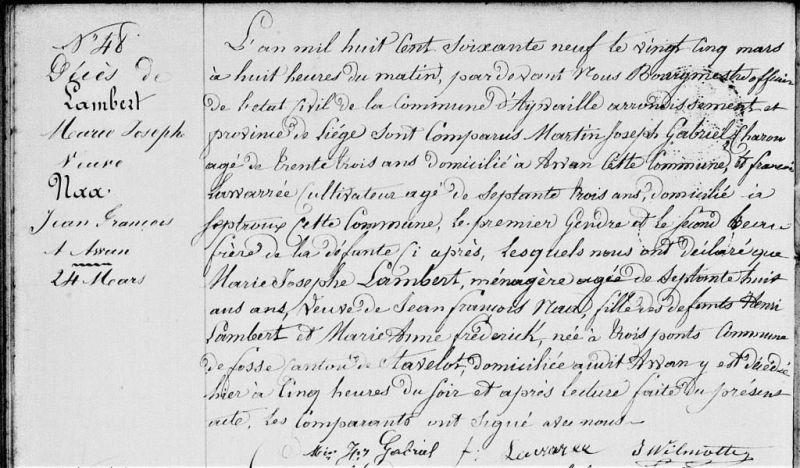 N° 48
Décès de
Lambert
Marie Joseph
Veuve
Nax
Jean François
à Awan
24 Mars
L'an mil huit cent soixante neuf le vingt cinq mars
à huit heures du matin, pardevant Nous Bourgmestre officier
de l'état civil de la Commune d'Aywaille arrondissement et
province de Liége sont comparus Martin Joseph Gabriel, Charon
agé de trente trois ans domicilié à Awan cette Commune, et françois
Lawarrée cultivateur agé de septante trois ans, domicilié à
Septroux cette Commune, le premier Gendre et le second beau
frère de la défunte ci après, lesquels nous ont déclaré que
Marie Josephe Lambert, ménagère agée de septante huit
ans ans, Veuve de Jean françois Nax, fille des defunts Henri
Lambert et Marie Anne frederick, née à trois ponts Commune
de fosse canton de Stavelot, domiciliée audit Awan y est décédée
hier à cinq heures du soir et après lecture faite du présent
acte, les comparants ont signé avec nous
Min Jph Gabriel f: Lawarée J Wilmotte